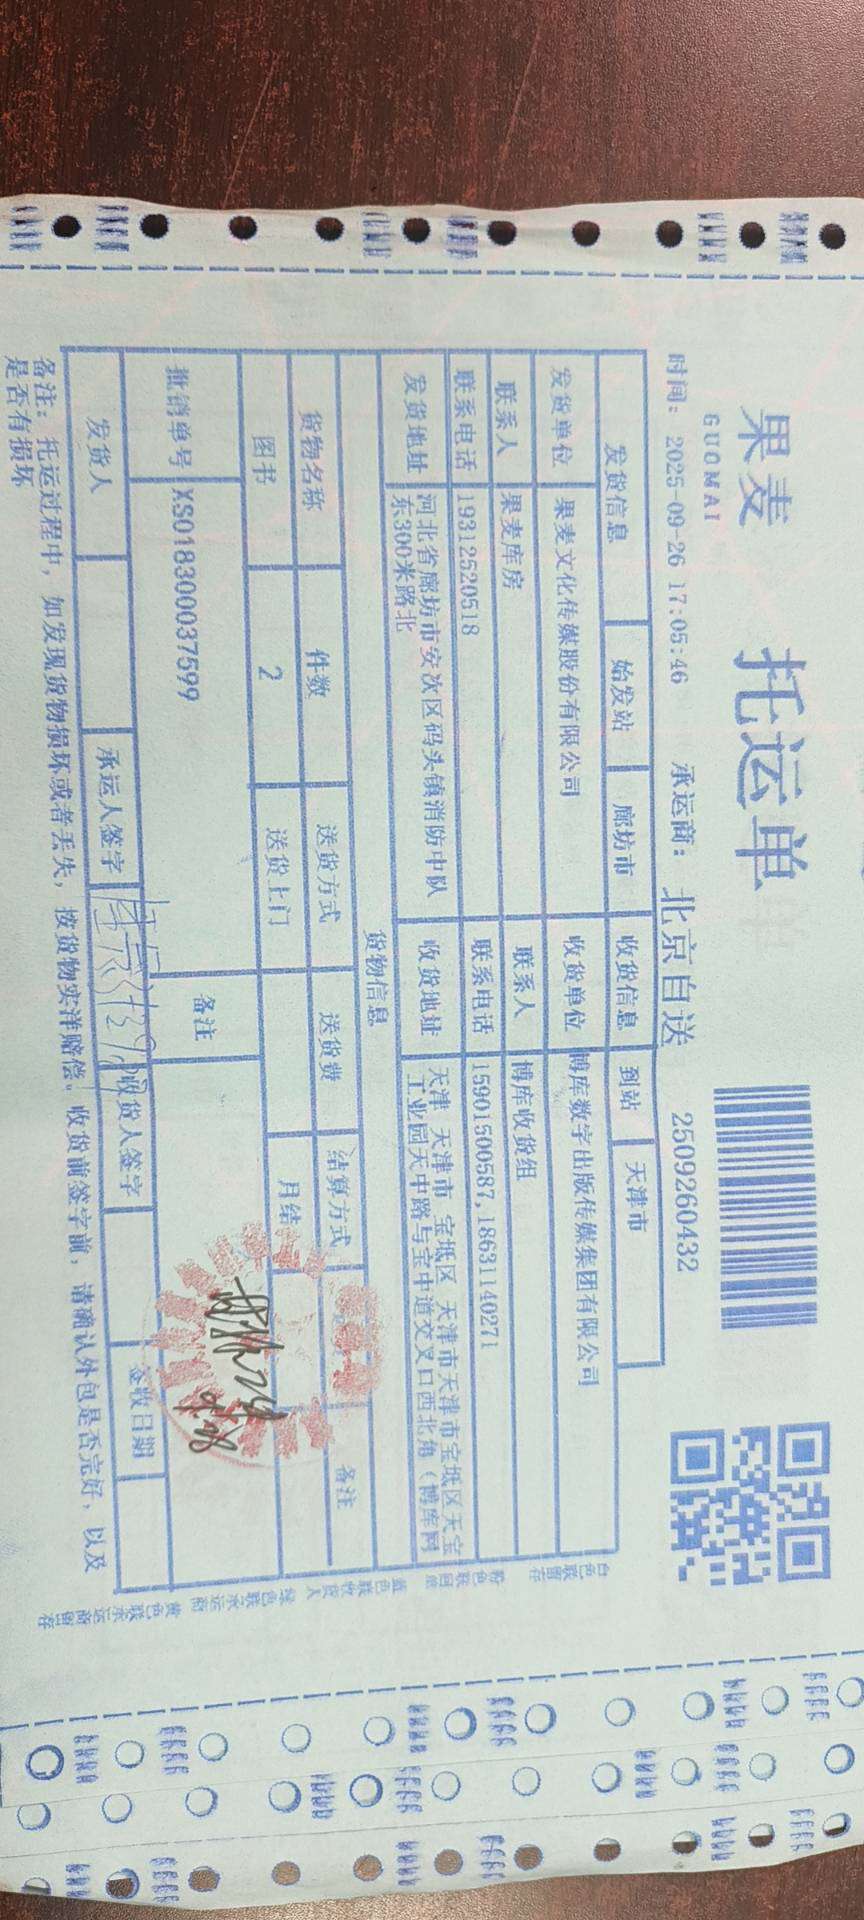 果麦
GUOMAI
托运单
时间：2025-09-26 17:05:46 承运商：北京自送 2509260432
发货信息 始发站 廊坊市 收货信息 到站 天津市
发货单位 果麦文化传媒股份有限公司 收货单位 博库数字出版传媒集团有限公司
联系人 果麦库房 联系人 博库收货组
联系电话 19312520518 联系电话 15901500587,18631140271
发货地址 河北省廊坊市安次区码头镇消防中队 收货地址 天津 天津市 宝坻区 天津市天津市宝坻区天宝
东300米路北 工业园天中路与宝中道交叉口西北角（博库网
货物信息
货物名称 件数 送货方式 送货费 结算方式 备注
图书 2 送货上门 月结
批销单号 XS018300037599 备注
发货人 承运人签字 收货人签字 签收日期
备注：托运过程中，如发现货物损坏或者丢失，按货物实洋赔偿。收货前签字前，请确认外包是否完好，以及
是否有损坏
白色联留存 粉色联回单 蓝色联收货人 绿色联承运商 黄色联承运商留存